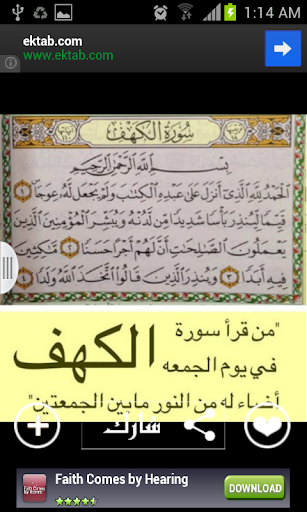 1:14 AM
ektab.com
www.ektab.com
سورة الكهف
بسم الله الرحمن الرحيم
الحمد لله الذي أنزل على عبده الكتاب ولم يجعل له عوجا ١
قيما لينذر بأسا شديدا من لدنه ويبشر المؤمنين الذين
يعملون الصالحات أن لهم أجرا حسنا ٢ ماكثين
فيه أبدا ٣ وينذر الذين قالوا اتخذ الله ولدا ٤
"من قرأ سورة
الكهف
في يوم الجمعه
أضاء له من النور مابين الجمعتين"
شارك
Faith Comes by Hearing
DOWNLOAD